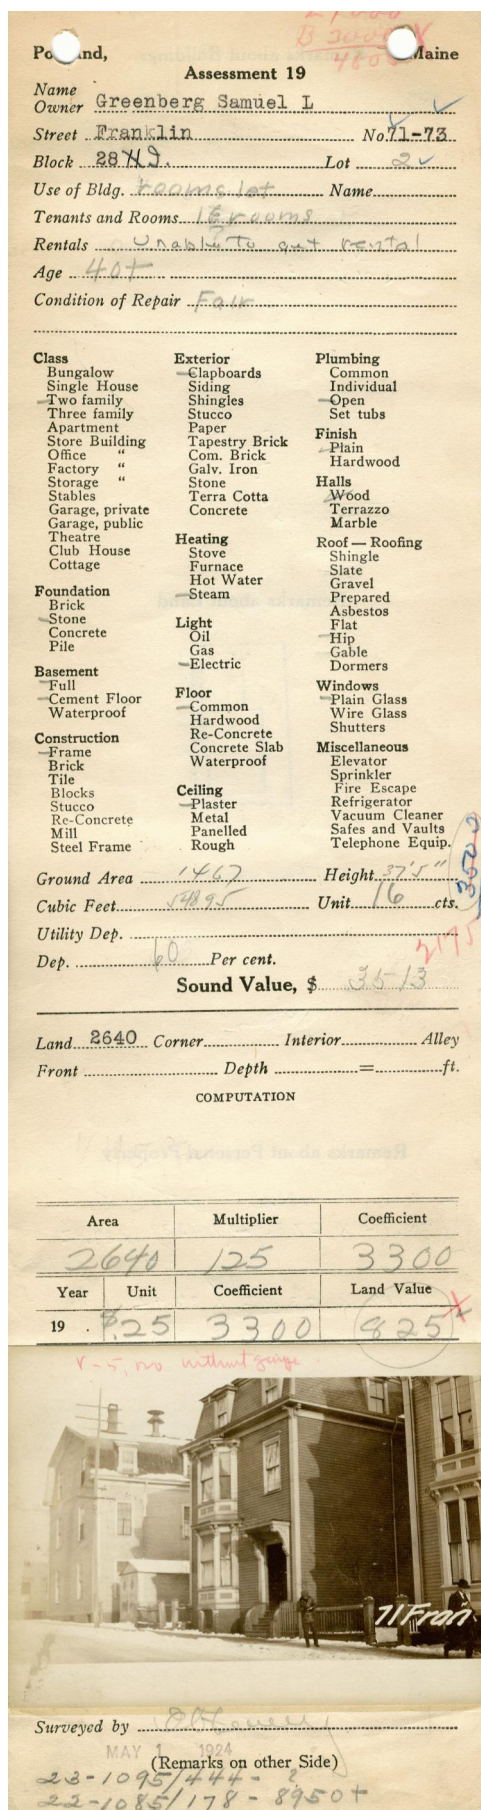 B 3000 X
Portland, Maine
Assessment 19
Name
Owner Greenberg Samuel L
Street Franklin No. 71-73
Block 28 Lot 2
Use of Bldg. rooms lot Name
Tenants and Rooms 16 rooms
Rentals Unable to get rental
Age 40+
Condition of Repair Fair
Class
Bungalow
Single House
Two family
Three family
Apartment
Store Building
Office "
Factory "
Storage "
Stables
Garage, private
Garage, public
Theatre
Club House
Cottage
Foundation
Brick
Stone
Concrete
Pile
Basement
Full
Cement Floor
Waterproof
Construction
Frame
Brick
Tile
Blocks
Stucco
Re-Concrete
Mill
Steel Frame
Exterior
Clapboards
Siding
Shingles
Stucco
Paper
Tapestry Brick
Com. Brick
Galv. Iron
Stone
Terra Cotta
Concrete
Heating
Stove
Furnace
Hot Water
Steam
Light
Oil
Gas
Electric
Floor
Common
Hardwood
Re-Concrete
Concrete Slab
Waterproof
Ceiling
Plaster
Metal
Panelled
Rough
Plumbing
Common
Individual
Open
Set tubs
Finish
Plain
Hardwood
Halls
Wood
Terrazzo
Marble
Roof — Roofing
Shingle
Slate
Gravel
Prepared
Asbestos
Flat
Hip
Gable
Dormers
Windows
Plain Glass
Wire Glass
Shutters
Miscellaneous
Elevator
Sprinkler
Fire Escape
Refrigerator
Vacuum Cleaner
Safes and Vaults
Telephone Equip.
Ground Area 1467 Height 37'5"
Cubic Feet 54895 Unit 16 cts.
3600
Utility Dep.
2175
Dep. 60 Per cent.
Sound Value, $ 3513
Land 2640 Corner Interior Alley
Front Depth = ft.
COMPUTATION
Area Multiplier Coefficient
2640 125 3300
Year Unit Coefficient Land Value
19 . $.25 3300 825 X
71 Fran
Surveyed by
MAY 1 1924
(Remarks on other Side)
23-1095/444- ?
22-1085/178-8950+